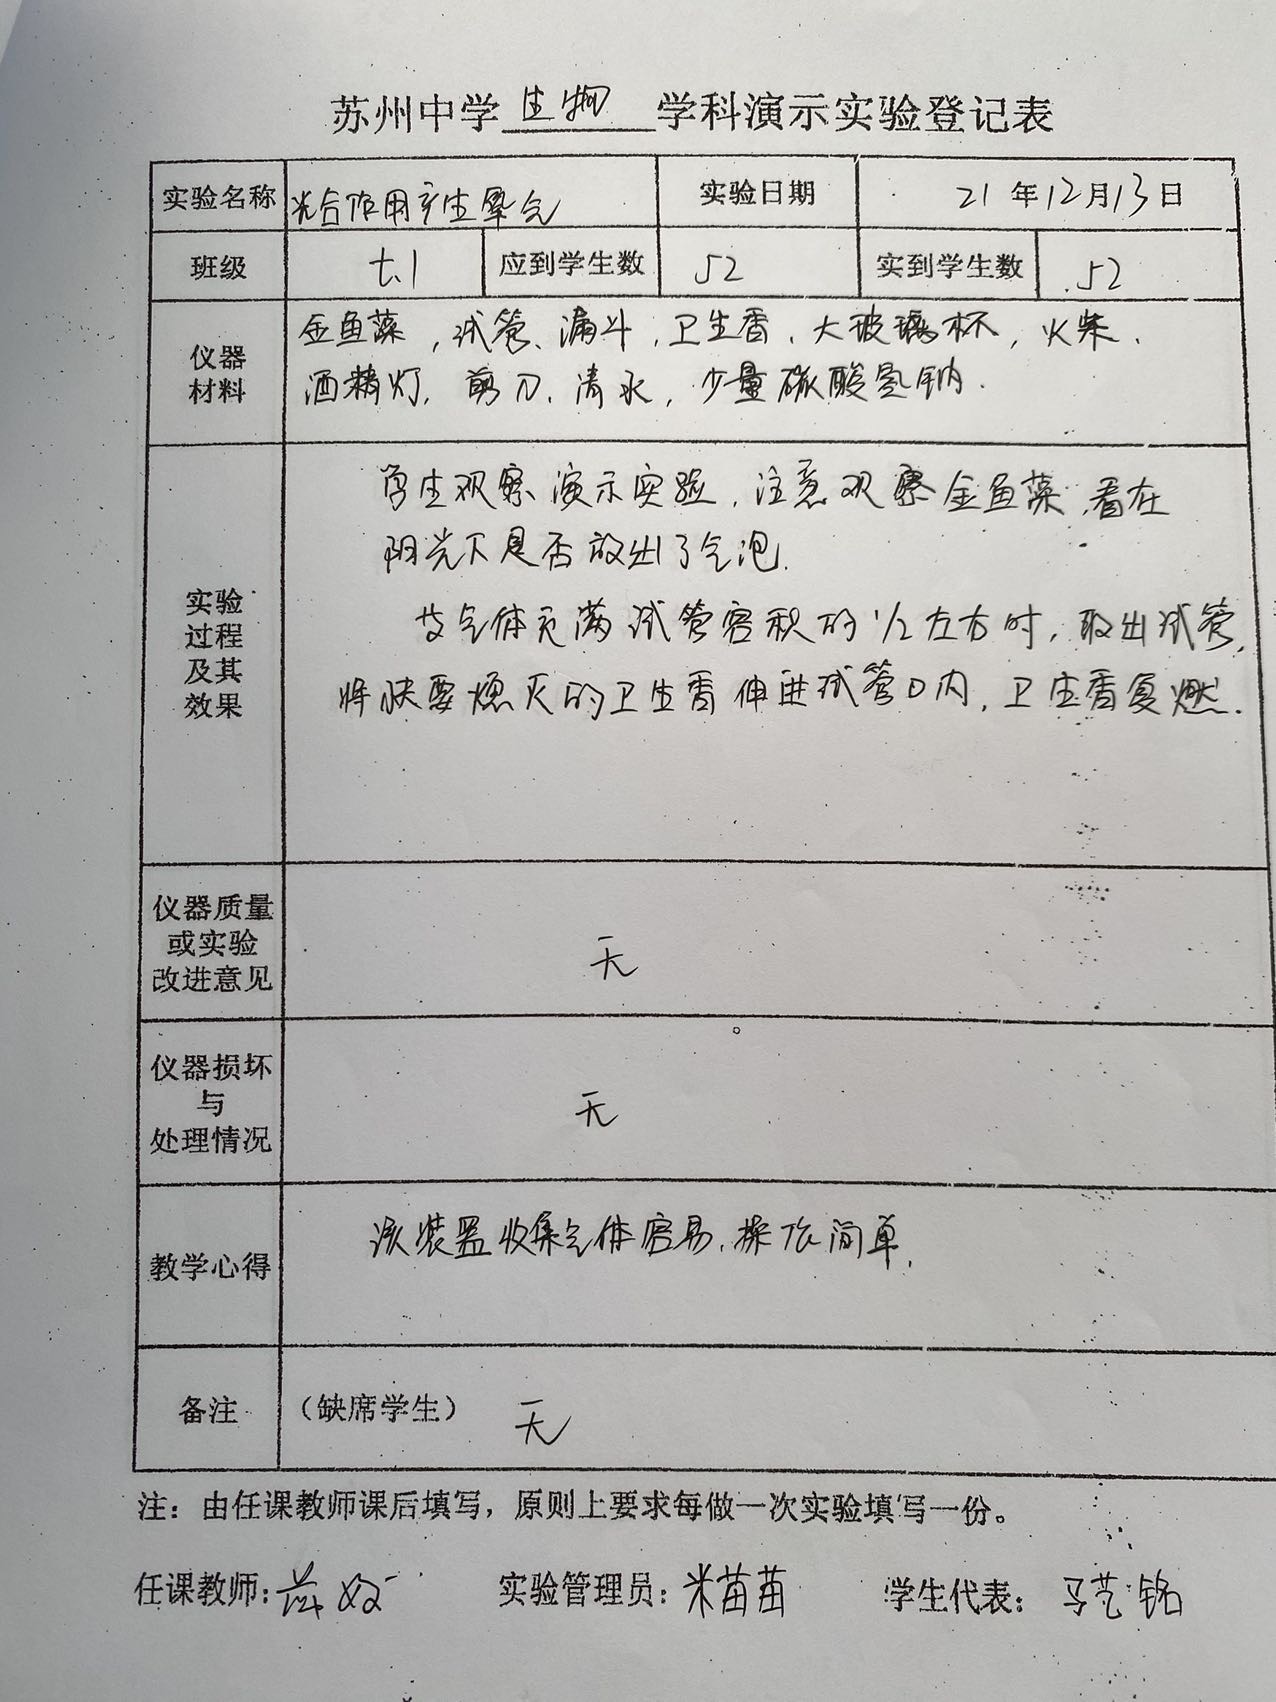 苏州中学 生物 学科演示实验登记表
实验名称 光合作用产生氧气 实验日期 21年12月13日
班级 七.1 应到学生数 52 实到学生数 52
仪器
材料
金鱼藻，试管、漏斗，卫生香、大玻璃杯，火柴、
酒精灯，剪刀、清水，少量碳酸氢钠.
实验
过程
及其
效果
学生观察演示实验，注意观察金鱼藻，看在
阳光下是否放出了气泡.
气体充满试管容积的1/2左右时，取出试管，
将快要熄灭的卫生香伸进试管口内，卫生香复燃.
仪器质量
或实验
改进意见
无
仪器损坏
与
处理情况
无
教学心得 该装置收集气体容易，操作简单.
备注 （缺席学生） 无
注：由任课教师课后填写，原则上要求每做一次实验填写一份。
任课教师： 实验管理员：米苗苗 学生代表：马艺铭